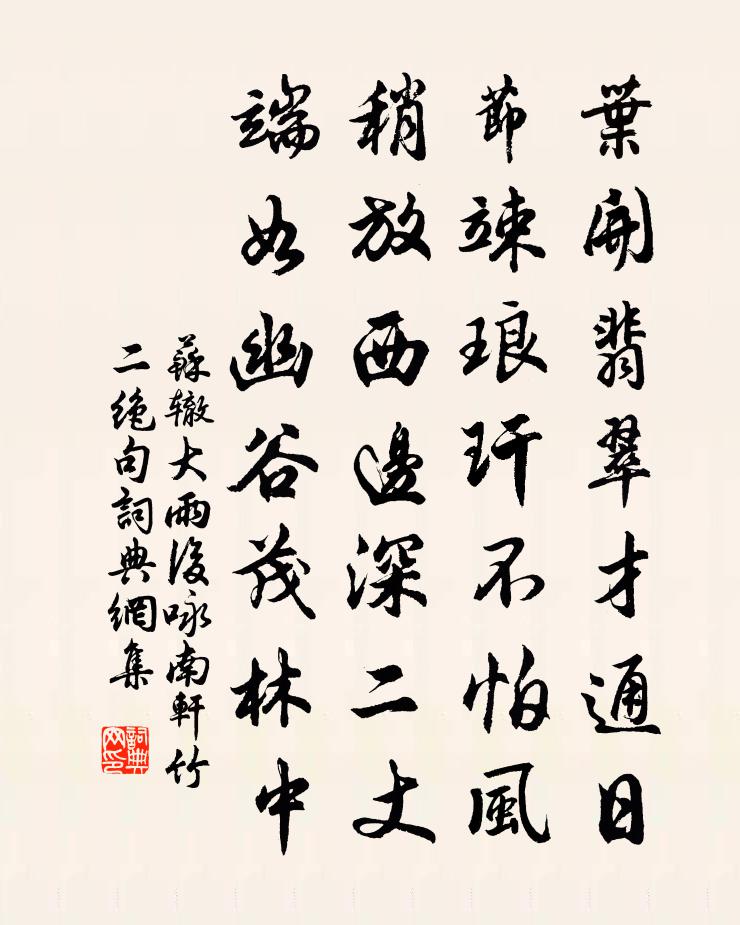 葉開翡翠才通日
節竦琅玕不怕風
稍放西邊深二丈
端如幽谷茂林中
蘇轍大雨後咏南軒竹
二絶句詞典網集
詞典网印